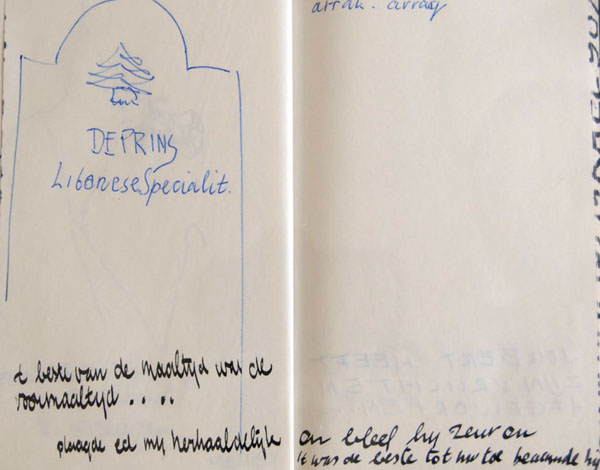 DE PRINS
LibaneseSpecialit.
't beste van de maaltyd was de
voormaaltyd . . . .
plaagde ed my herhaaldelijk
arrak. array
en bleef hy zeuren
't was de beste tot nu toe beaamde hij